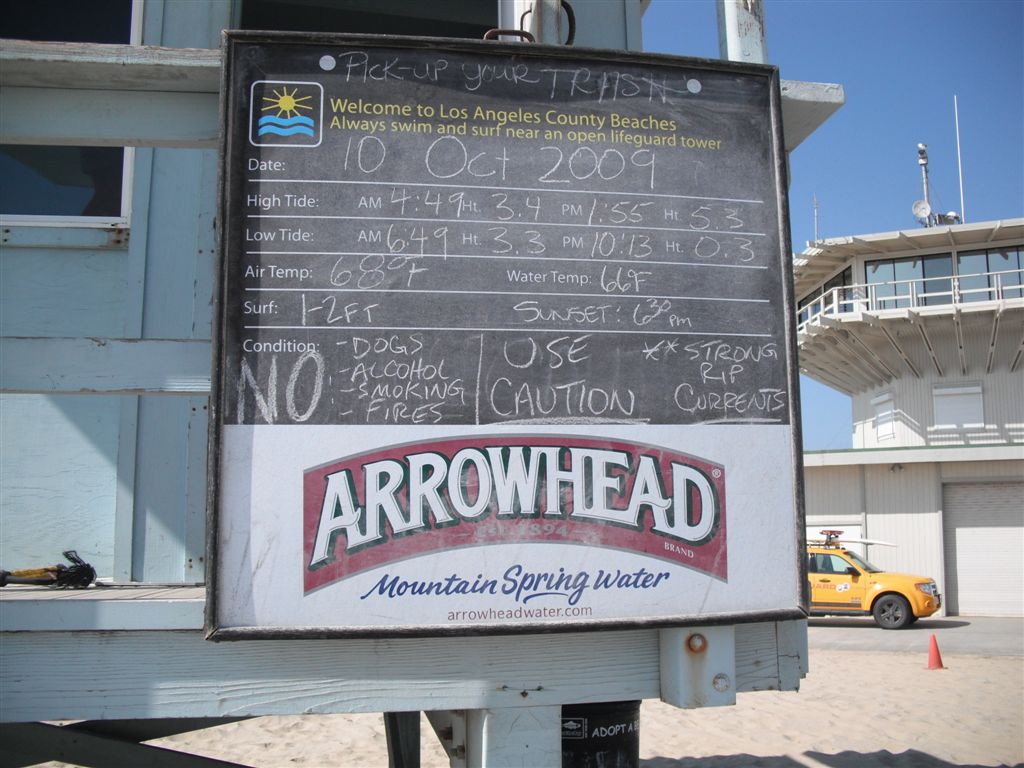 Pick-up your TRASH
Welcome to Los Angeles County Beaches
Always swim and surf near an open lifeguard tower
Date: 10 Oct 2009
High Tide: AM 4:49 Ht. 3.4 PM 1:55 Ht. 5.3
Low Tide: AM 6:49 Ht. 3.3 PM 10:13 Ht. 0.3
Air Temp: 68°F Water Temp: 66°F
Surf: 1-2FT SUNSET: 6:30 pm
Condition: NO: - DOGS
- ALCOHOL
- SMOKING
- FIRES
USE
CAUTION
** STRONG
RIP
CURRENTS
ARROWHEAD®
EST. 1894
BRAND
Mountain Spring Water
arrowheadwater.com
ADOPT A